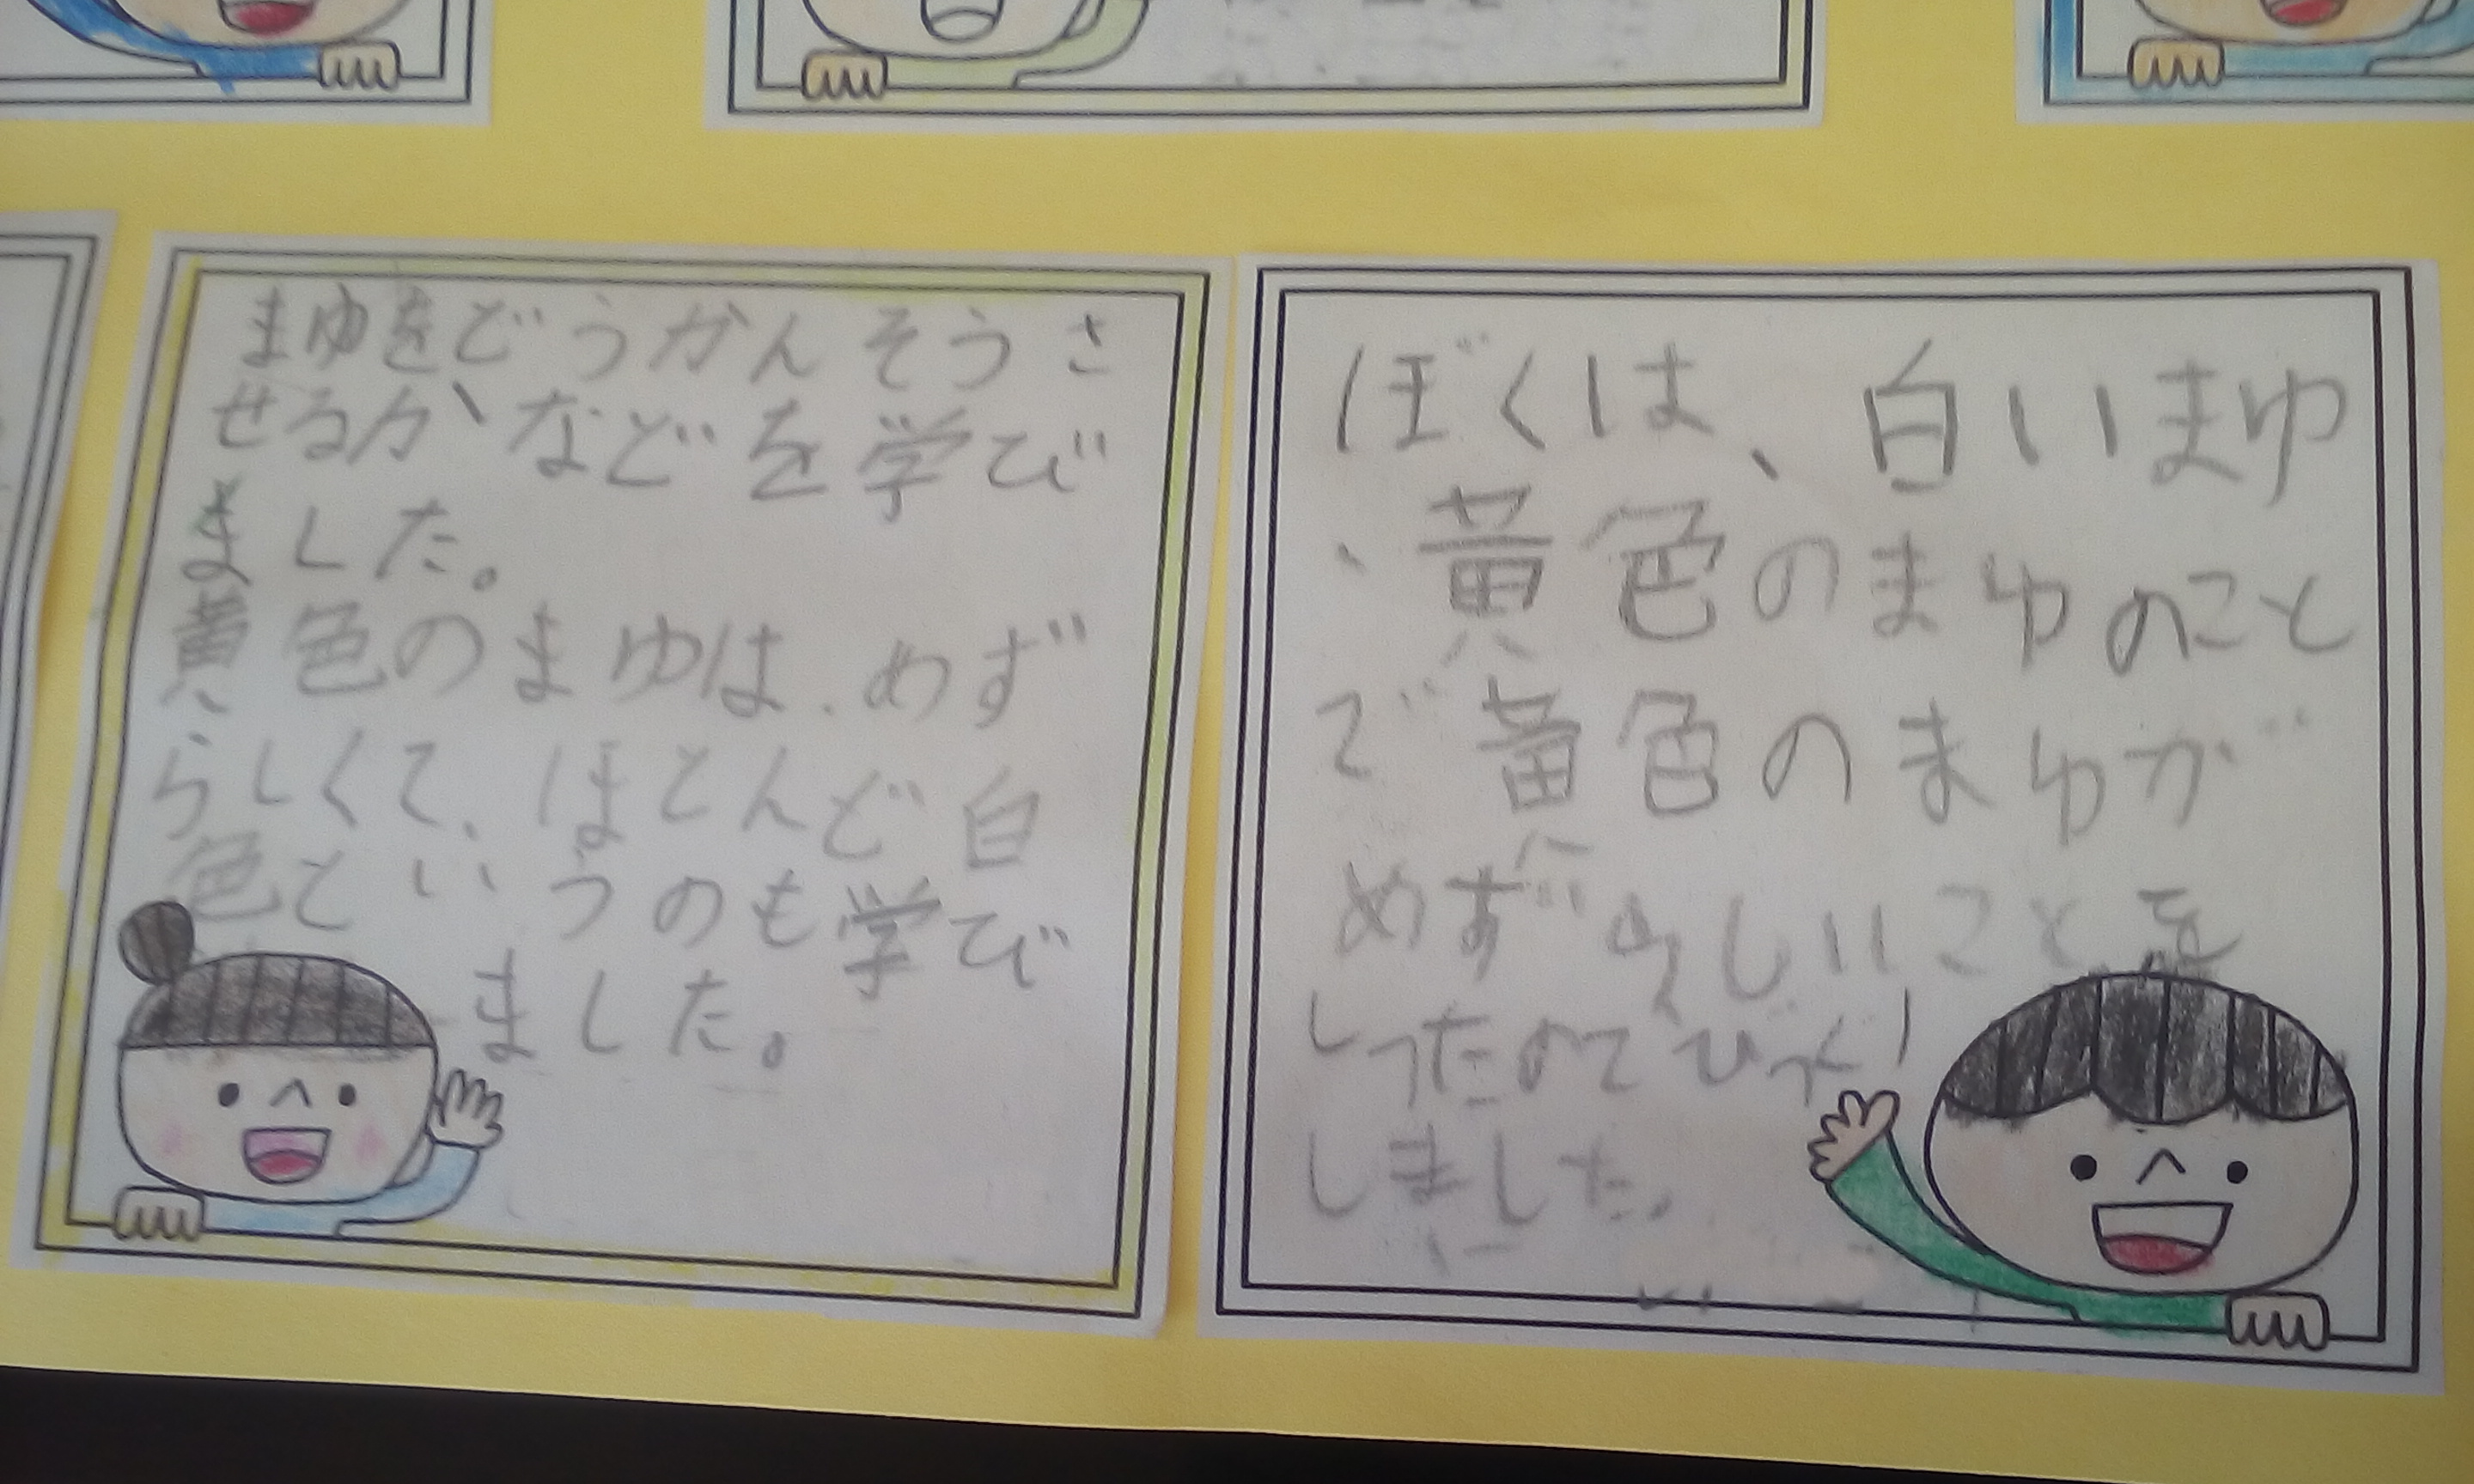 まゆをどうかんそうさ
せるか、などを学び
ました。
黄色のまゆは、めず
らしくて、ほとんど白
色というのも学び
ました。
ぼくは、白いまゆ
、黄色のまゆのこと
で黄色のまゆが
めずらしいことを
しったのでびっくり
しました。